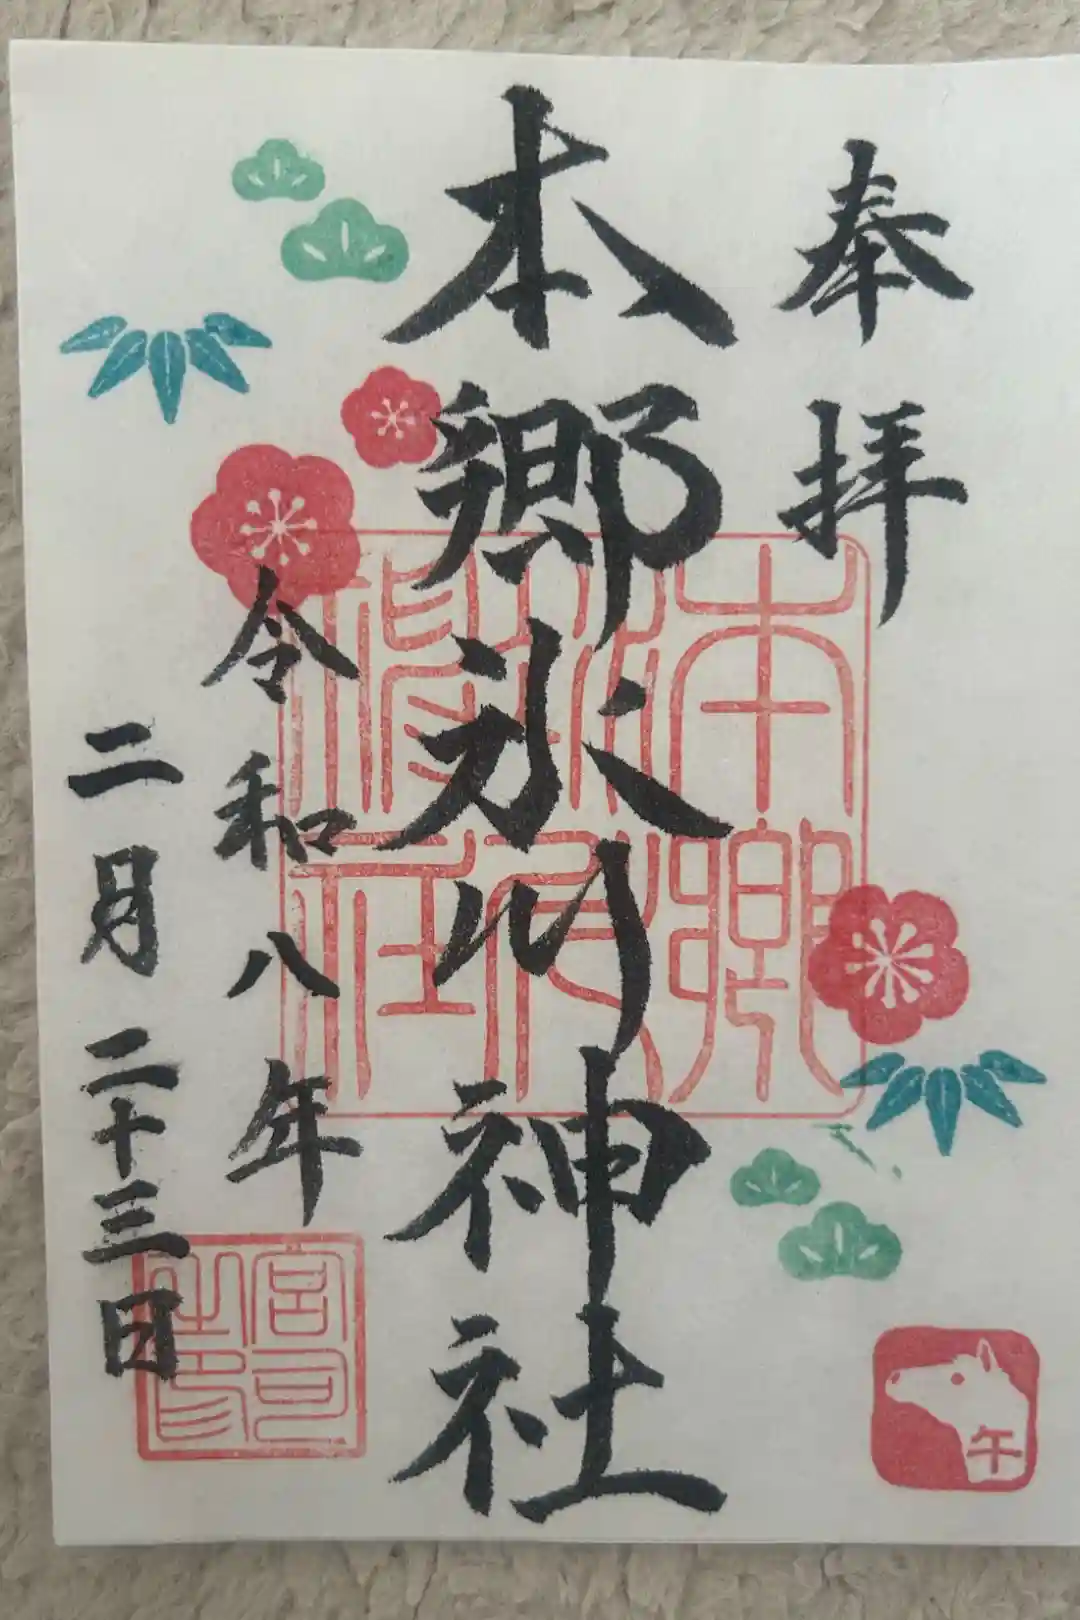 奉拝
本郷氷川神社
令和八年
二月二十三日
本郷
氷川
神社
宮司
之印
午